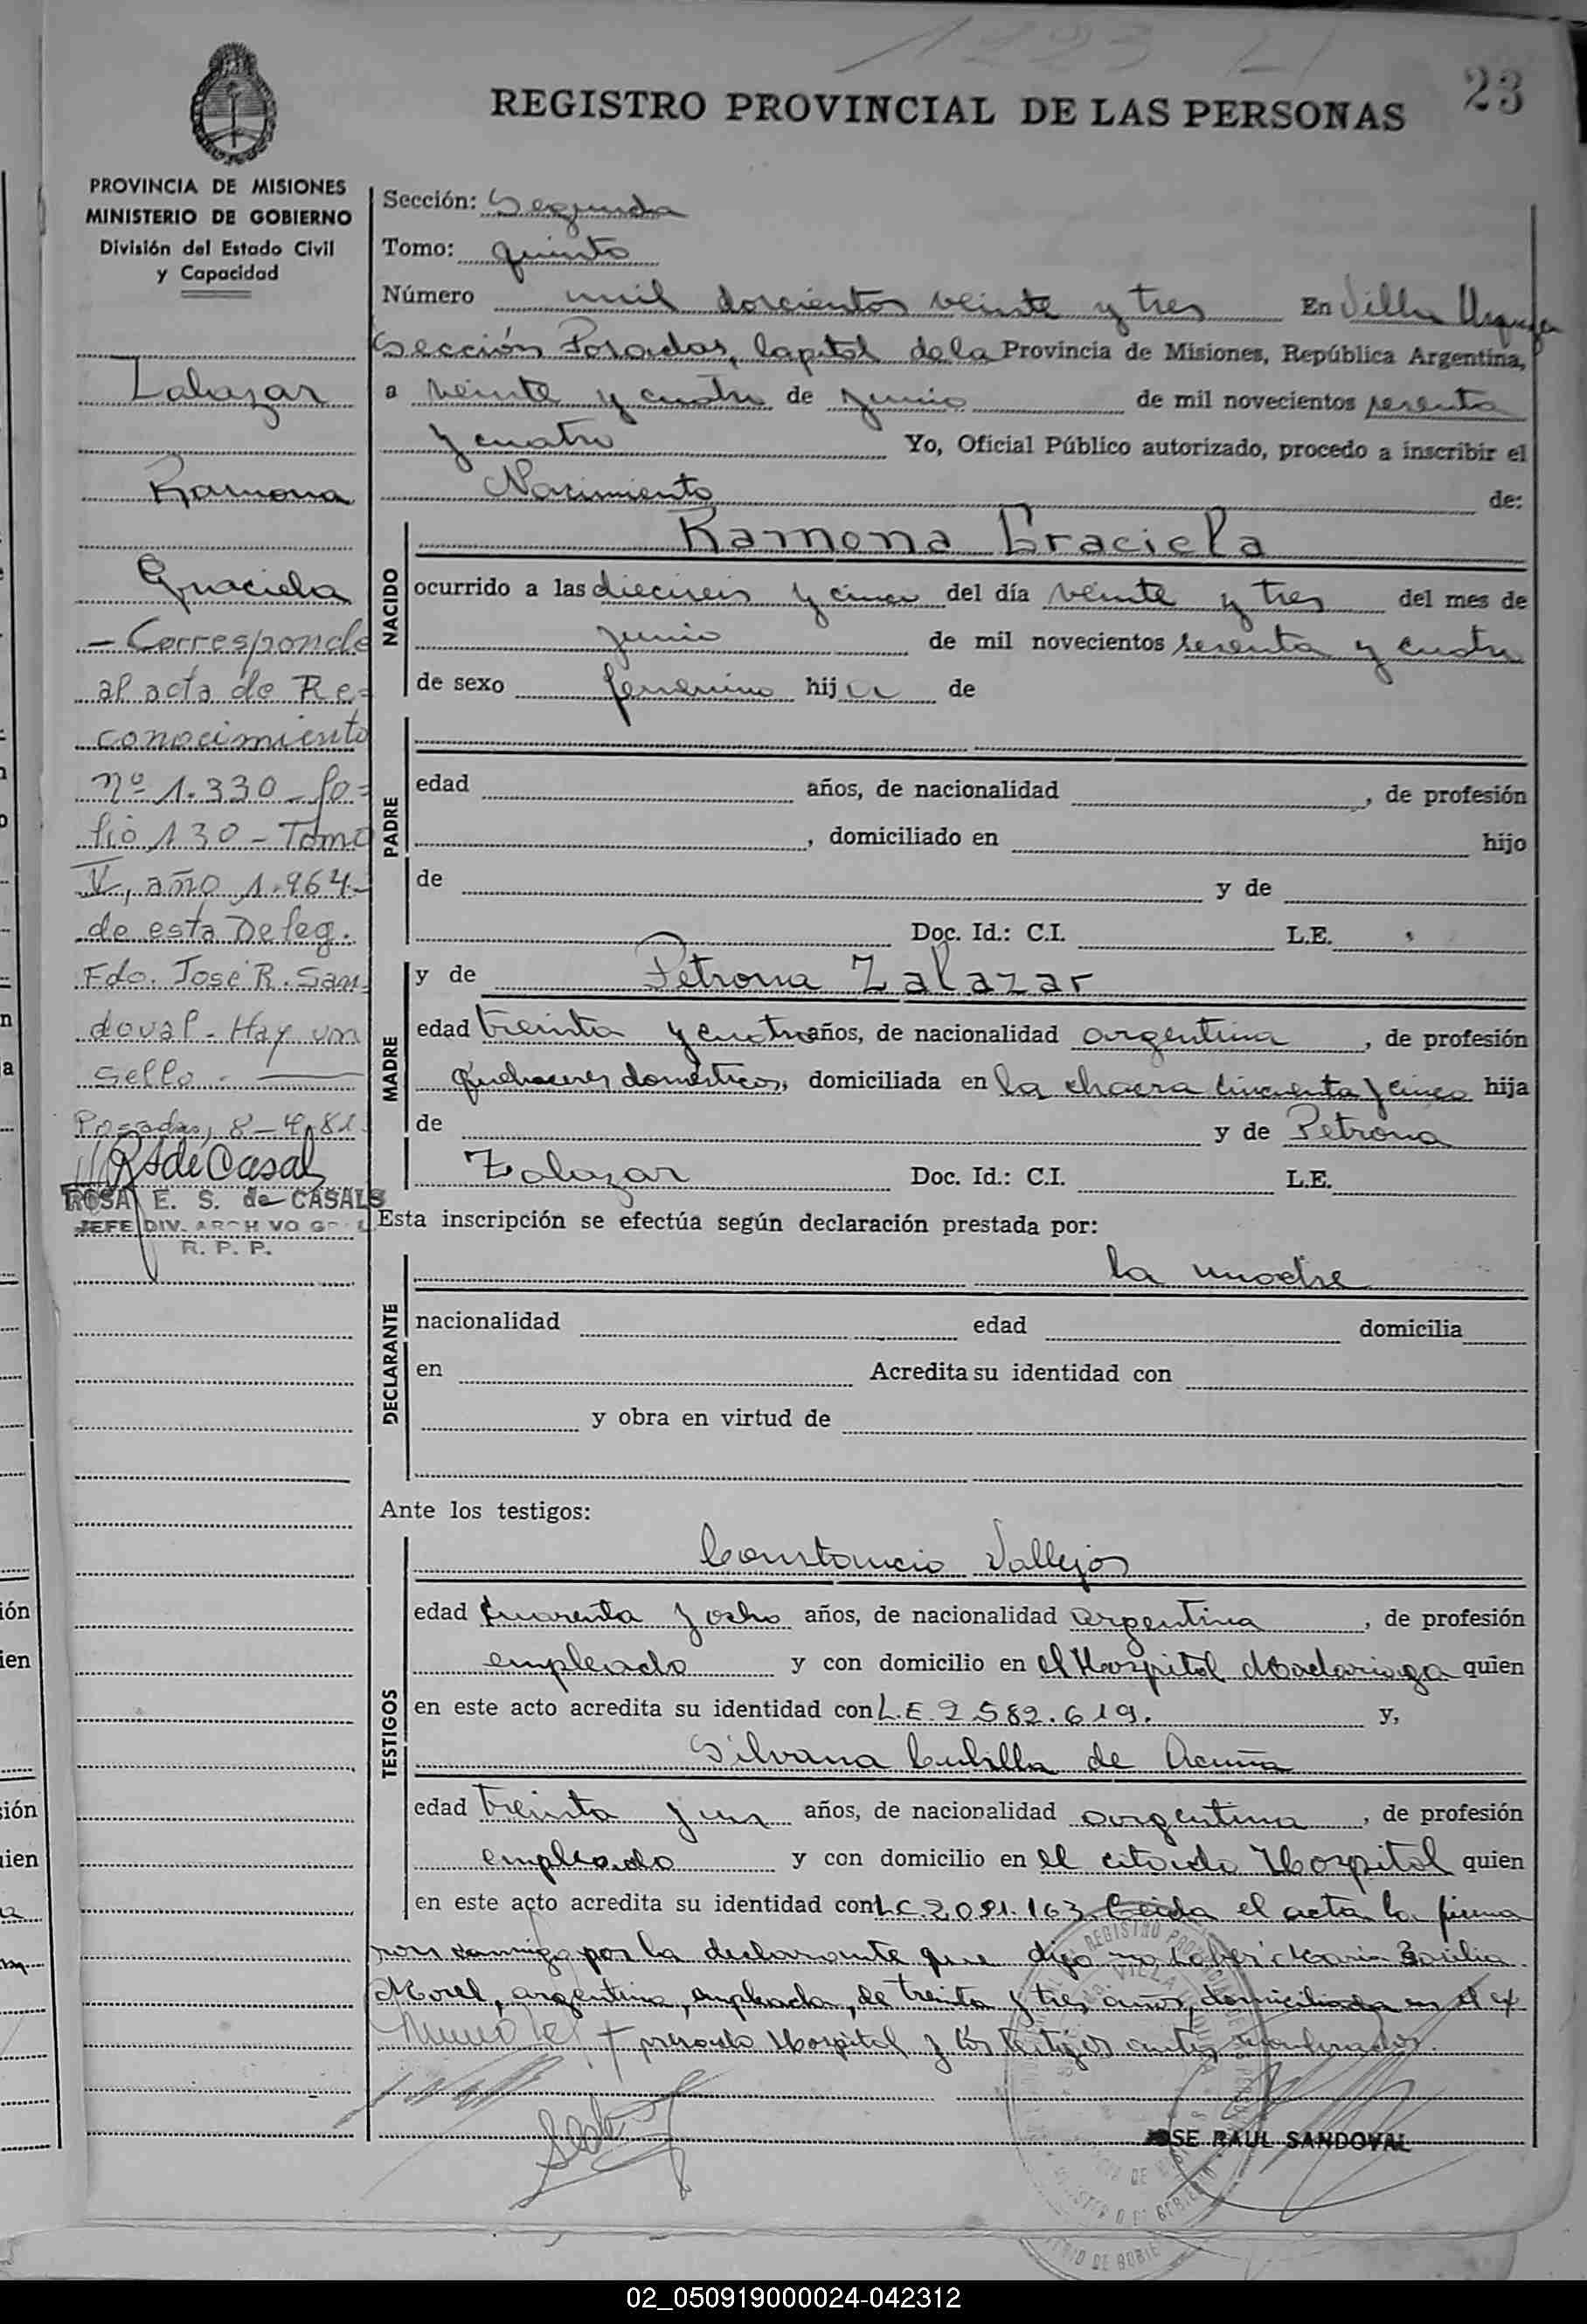 1223 L
23
REGISTRO PROVINCIAL DE LAS PERSONAS
PROVINCIA DE MISIONES
MINISTERIO DE GOBIERNO
División del Estado Civil
y Capacidad
Zalazar
Ramona
Graciela
- Corresponde
al acta de Re=
conocimiento
nº 1.330 - fo=
lio 130 - Tomo
V, año 1.964-
de esta Deleg.
Fdo. José R. San
doval - Hay un
sello. -
Posadas, 8-4-81
RSdeCasals
ROSA E. S. de CASALS
JEFE DIV. ARCHIVO GRAL
R. P. P.
Sección: Segunda
Tomo: quinto
Número mil doscientos veinte y tres En Villa Urquiza
Sección Posadas, Capital de la Provincia de Misiones, República Argentina,
a veinte y cuatro de junio de mil novecientos sesenta
y cuatro Yo, Oficial Público autorizado, procedo a inscribir el
Nacimiento de:
NACIDO
Ramona Graciela
ocurrido a las dieciseis y cinco del día veinte y tres del mes de
junio de mil novecientos sesenta y cuatro
de sexo femenino hija de
PADRE
edad años, de nacionalidad , de profesión
, domiciliado en hijo
de y de
Doc. Id.: C.I. L.E.
MADRE
y de Petrona Zalazar
edad treinta y cuatro años, de nacionalidad argentina , de profesión
Quehaceres domésticos, domiciliada en la chacra cincuenta y cinco hija
de y de Petrona
Zalazar Doc. Id.: C.I. L.E.
Esta inscripción se efectúa según declaración prestada por:
DECLARANTE
la madre
nacionalidad edad domicilia
en Acredita su identidad con
y obra en virtud de
Ante los testigos:
TESTIGOS
Constancio Vallejos
edad cuarenta y ocho años, de nacionalidad argentina , de profesión
empleado y con domicilio en el Hospital Madariaga quien
en este acto acredita su identidad con L.E. 2.582.619. y,
Silvana Cubilla de Acuña
edad treinta y un años, de nacionalidad argentina , de profesión
empleado y con domicilio en el citado Hospital quien
en este acto acredita su identidad con L.C. 2.091.163. Leida el acta la firma
ron conmigo por la declarante que dijo no saber Maria Basilia
Morel, argentina, empleada, de treinta y tres años, domiciliada en el ex
presado Hospital y los testigos antes nombrados.
JOSE RAUL SANDOVAL
02_050919000024-042312